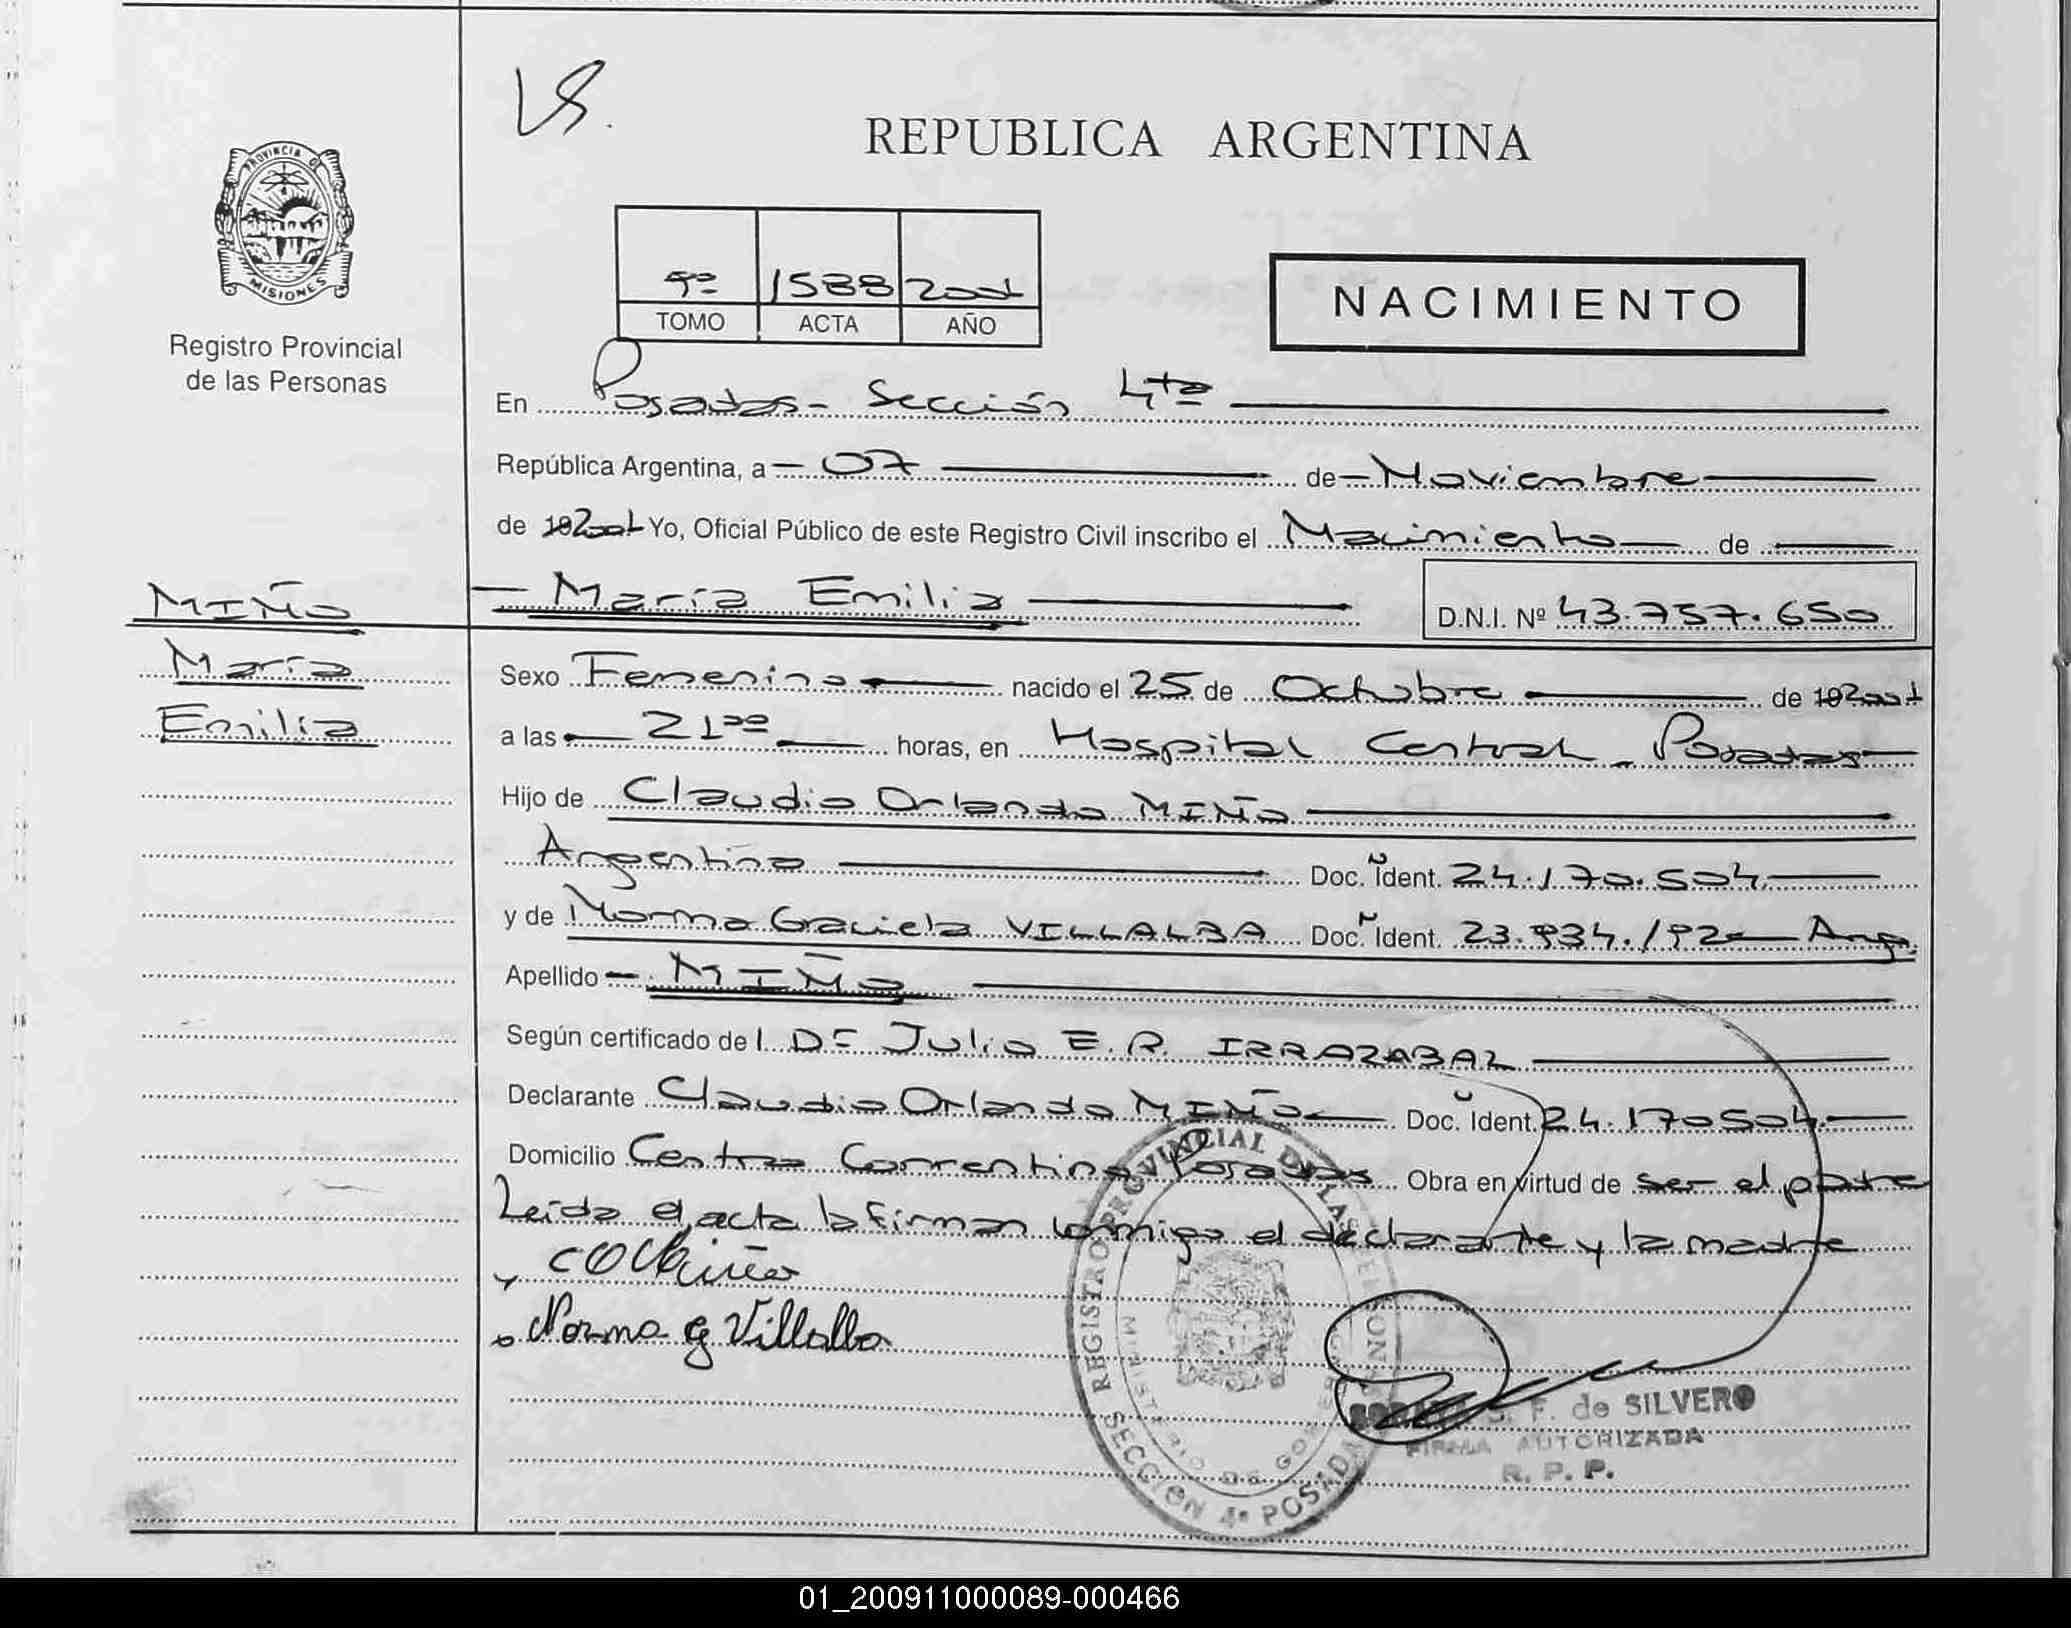 LS.
REPUBLICA ARGENTINA
PROVINCIA D
MISIONES
Registro Provincial
de las Personas
1588 2001
TOMO ACTA AÑO
NACIMIENTO
En Posadas - Sección 4ta
República Argentina, a 07 de Noviembre
de 19 2001 Yo, Oficial Público de este Registro Civil inscribo el Nacimiento de
MIÑO
María Emilia D.N.I. Nº 43.757.650
María
Emilia
Sexo Femenino nacido el 25 de Octubre de 19 2001
a las 21 00 horas, en Hospital Central - Posadas
Hijo de Claudio Orlando MIÑO
Argentina Doc. Ident. 24.170.504
y de Norma Graciela VILLALBA Doc. Ident. 23.934.192 Arg.
Apellido MIÑO
Según certificado del Dr Julio E. R. IRRAZABAL
Declarante Claudio Orlando MIÑO Doc. Ident. 24.170504
Domicilio Centro Correntino Posadas Obra en virtud de ser el padre
Leída el acta la firman conmigo el declarante y la madre
COMiño
Norma G Villalba
REGISTRO PROVINCIAL DE LAS PERSONAS
MINISTERIO DE GOBIERNO
SECCION 4ª POSADAS
S. F. de SILVERO
FIRMA AUTORIZADA
R. P. P.
01_200911000089-000466